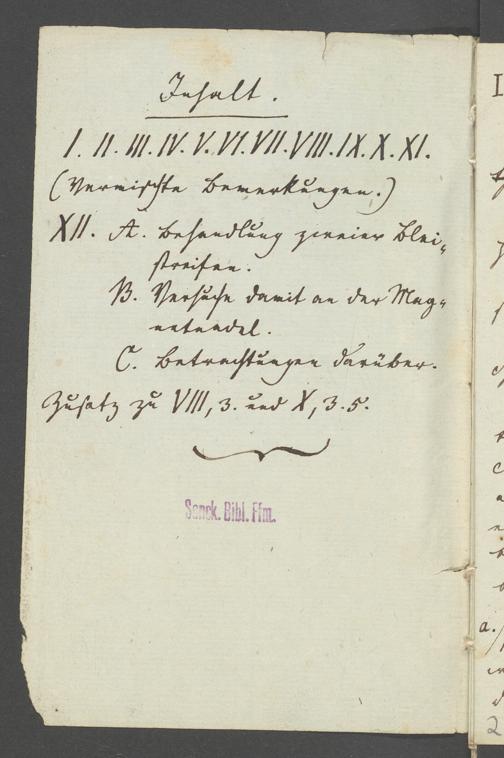 Inhalt.
I. II. III. IV. V. VI. VII. VIII. IX. X. XI.
(Vermischte Bemerkungen.)
XII. A. Behandlung zweier Blei-
streifen.
B. Versuche damit an der Mag-
netnadel.
C. Betrachtungen darüber.
Zusatz zu VIII, 3. und X, 3. 5.
Senck. Bibl. Ffm.
a.
2